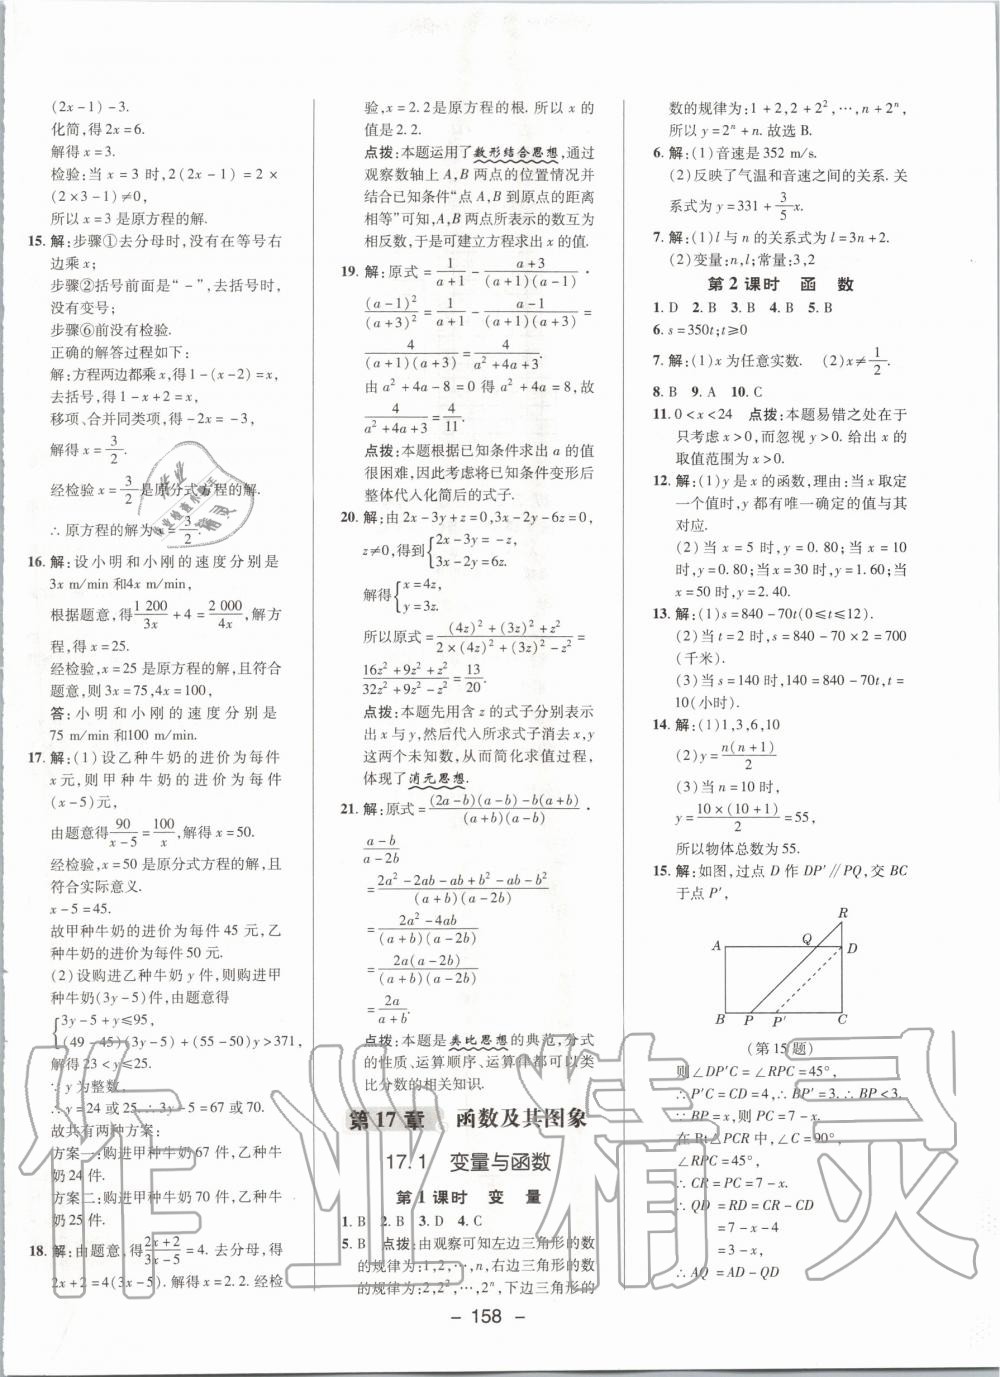 (2x-1)-3.
化简,得2x=6.
解得x=3.
检验:当x=3时,2(2x-1)=2×
(2×3-1)≠0,
所以x=3是原方程的解.
15. 解:步骤①去分母时,没有在等号右
边乘x;
步骤②括号前面是“-”,去括号时,
没有变号;
步骤⑥前没有检验.
正确的解答过程如下:
解:方程两边都乘x,得1-(x-2)=x,
去括号,得1-x+2=x,
移项、合并同类项,得-2x=-3,
解得x=3/2.
经检验x=3/2是原分式方程的解.
∴原方程的解为x=3/2.
16. 解:设小明和小刚的速度分别是
3x m/min和4x m/min,
根据题意,得1 200/3x+4=2 000/4x,解方
程,得x=25.
经检验,x=25是原方程的解,且符合
题意,则3x=75,4x=100,
答:小明和小刚的速度分别是
75 m/min和100 m/min.
17. 解:(1)设乙种牛奶的进价为每件
x元,则甲种牛奶的进价为每件
(x-5)元,
由题意得90/(x-5)=100/x,解得x=50.
经检验,x=50是原分式方程的解,且
符合实际意义.
x-5=45.
故甲种牛奶的进价为每件45元,乙
种牛奶的进价为每件50元.
(2)设购进乙种牛奶y件,则购进甲
种牛奶(3y-5)件,由题意得
{3y-5+y≤95,
(49-45)(3y-5)+(55-50)y>371,
解得23<y≤25.
∵y为整数,
∴y=24或25.∴3y-5=67或70.
故共有两种方案:
方案一:购进甲种牛奶67件,乙种牛
奶24件.
方案二:购进甲种牛奶70件,乙种牛
奶25件.
18. 解:由题意,得(2x+2)/(3x-5)=4.去分母,得
2x+2=4(3x-5).解得x=2.2.经检
验,x=2.2是原方程的根.所以x的
值是2.2.
点拨:本题运用了数形结合思想,通过
观察数轴上A,B两点的位置情况并
结合已知条件“点A,B到原点的距离
相等”可知,A,B两点所表示的数互为
相反数,于是可建立方程求出x的值.
19. 解:原式=1/(a+1)-(a+3)/((a+1)(a-1))·
(a-1)²/((a+1)(a+3))=1/(a+1)-(a-1)/(a+1)²=
4/((a+1)(a+3))=4/(a²+4a+3).
由a²+4a-8=0得a²+4a=8,故
4/(a²+4a+3)=4/11.
点拨:本题根据已知条件求出a的值
很困难,因此考虑将已知条件变形后
整体代入化简后的式子.
20. 解:由2x-3y+z=0,3x-2y-6z=0,
z≠0,得到{2x-3y=-z,
3x-2y=6z.
解得{x=4z,
y=3z.
所以原式=((4z)²+(3z)²+z²)/(2×(4z)²+(3z)²-z²)=
(16z²+9z²+z²)/(32z²+9z²-z²)=13/20.
点拨:本题先用含z的式子分别表示
出x与y,然后代入所求式子消去x,y
这两个未知数,从而简化求值过程,
体现了消元思想.
21. 解:原式=((2a-b)(a-b)-b(a+b))/((a+b)(a-b))·
(a-b)/(a-2b)
=(2a²-2ab-ab+b²-ab-b²)/((a+b)(a-2b))
=(2a²-4ab)/((a+b)(a-2b))
=2a(a-2b)/((a+b)(a-2b))
=2a/(a+b).
点拨:本题是类比思想的典范,分式
的性质、运算顺序、运算律都可以类
比分数的相关知识.
第17章 函数及其图象
17.1 变量与函数
第1课时 变 量
1. B 2. B 3. D 4. C
5. B 点拨:由观察可知左边三角形的数
的规律为:1,2,…,n,右边三角形的数
的规律为:2,2²,…,2ⁿ,下边三角形的
数的规律为:1+2,2+2²,…,n+2ⁿ,
所以y=2ⁿ+n.故选B.
6. 解:(1)音速是352 m/s.
(2)反映了气温和音速之间的关系.关
系式为y=331+3/5x.
7. 解:(1)l与n的关系式为l=3n+2.
(2)变量:n,l;常量:3,2
第2课时 函 数
1. D 2. B 3. B 4. B 5. B
6. s=350t;t≥0
7. 解:(1)x为任意实数. (2)x≠1/2.
8. B 9. A 10. C
11. 0<x<24 点拨:本题易错之处在于
只考虑x>0,而忽视y>0.给出x的
取值范围为x>0.
12. 解:(1)y是x的函数,理由:当x取定
一个值时,y都有唯一确定的值与其
对应.
(2)当x=5时,y=0.80;当x=10
时,y=0.80;当x=30时,y=1.60;当
x=50时,y=2.40.
13. 解:(1)s=840-70t(0≤t≤12).
(2)当t=2时,s=840-70×2=700
(千米).
(3)当s=140时,140=840-70t,t=
10(小时).
14. 解:(1)1,3,6,10
(2)y=n(n+1)/2
(3)当n=10时,
y=10×(10+1)/2=55,
所以物体总数为55.
15. 解:如图,过点D作DP′∥PQ,交BC
于点P′,
R
Q
A D
B P P′ C
(第15题)
则∠DP′C=∠RPC=45°,
∴P′C=DC=4.∴BP′=3.∴BP<3.
∵BP=x,则PC=7-x.
在Rt△PCR中,∠C=90°,
∠RPC=45°,
∴CR=PC=7-x.
∴QD=RD=CR-CD
=7-x-4
=3-x.
∴AQ=AD-QD
- 158 -
作业精灵